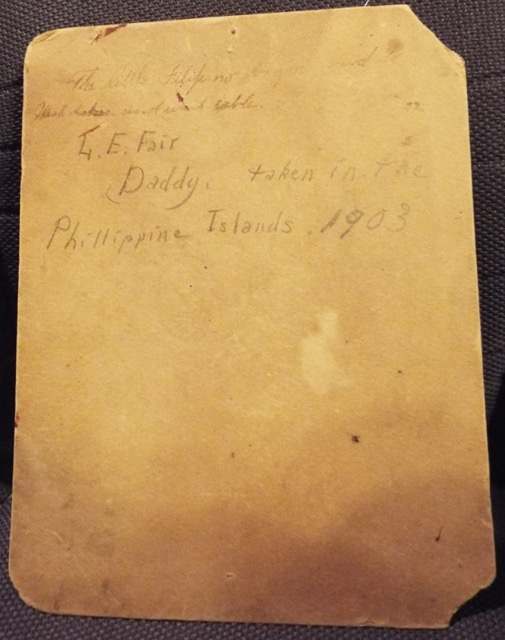 The little Filipino
and table.
L. E. Fair
Daddy. taken in the
Phillippine Islands. 1903